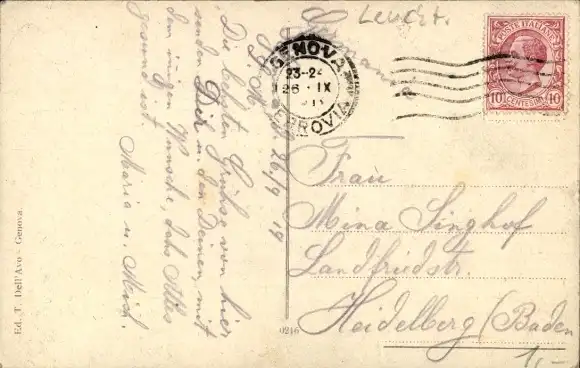 Leucht.
Germania
POSTE ITALIANE
10 CENTESIMI 10
GENOVA
23-24
26 IX
FERROVIA
26/9 19
Die besten Grüße von hier
senden Dir u. den Deinen, mit
dem innigen Wunsche, dass Alles
gesund ist.
Maria u. Mich.
Frau
Mina Singhof
Landfriedstr.
Heidelberg (Baden
Ed. T. Dell'Avo - Genova.
0216
1,-